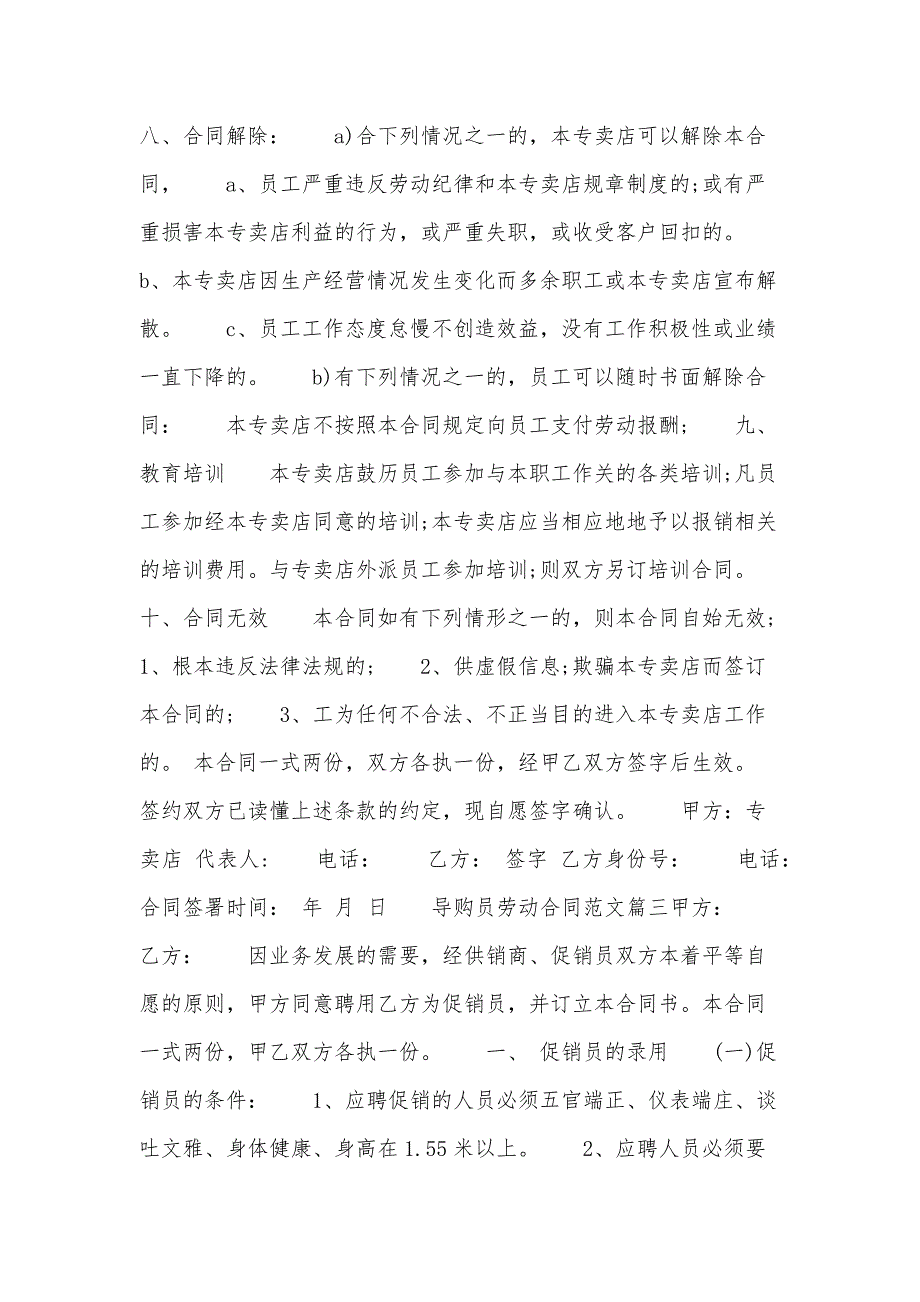 八、合同解除： a)合下列情况之一的，本专卖店可以解除本合
同， a、员工严重违反劳动纪律和本专卖店规章制度的;或有严
重损害本专卖店利益的行为，或严重失职，或收受客户回扣的。
b、本专卖店因生产经营情况发生变化而多余职工或本专卖店宣布解
散。 c、员工工作态度怠慢不创造效益，没有工作积极性或业绩
一直下降的。 b)有下列情况之一的，员工可以随时书面解除合
同： 本专卖店不按照本合同规定向员工支付劳动报酬; 九、
教育培训 本专卖店鼓历员工参加与本职工作关的各类培训;凡员
工参加经本专卖店同意的培训;本专卖店应当相应地地予以报销相关
的培训费用。与专卖店外派员工参加培训;则双方另订培训合同。
十、合同无效 本合同如有下列情形之一的，则本合同自始无效;
1、根本违反法律法规的; 2、供虚假信息;欺骗本专卖店而签订
本合同的; 3、工为任何不合法、不正当目的进入本专卖店工作
的。 本合同一式两份，双方各执一份，经甲乙双方签字后生效。
签约双方已读懂上述条款的约定，现自愿签字确认。 甲方：专
卖店 代表人: 电话： 乙方： 签字 乙方身份号： 电话：
合同签署时间： 年 月 日 导购员劳动合同范文篇三甲方：
乙方： 因业务发展的需要，经供销商、促销员双方本着平等自
愿的原则，甲方同意聘用乙方为促销员，并订立本合同书。本合同
一式两份，甲乙双方各执一份。 一、 促销员的录用 (一)促
销员的条件： 1、应聘促销的人员必须五官端正、仪表端庄、谈
吐文雅、身体健康、身高在 1.55 米以上。 2、应聘人员必须要